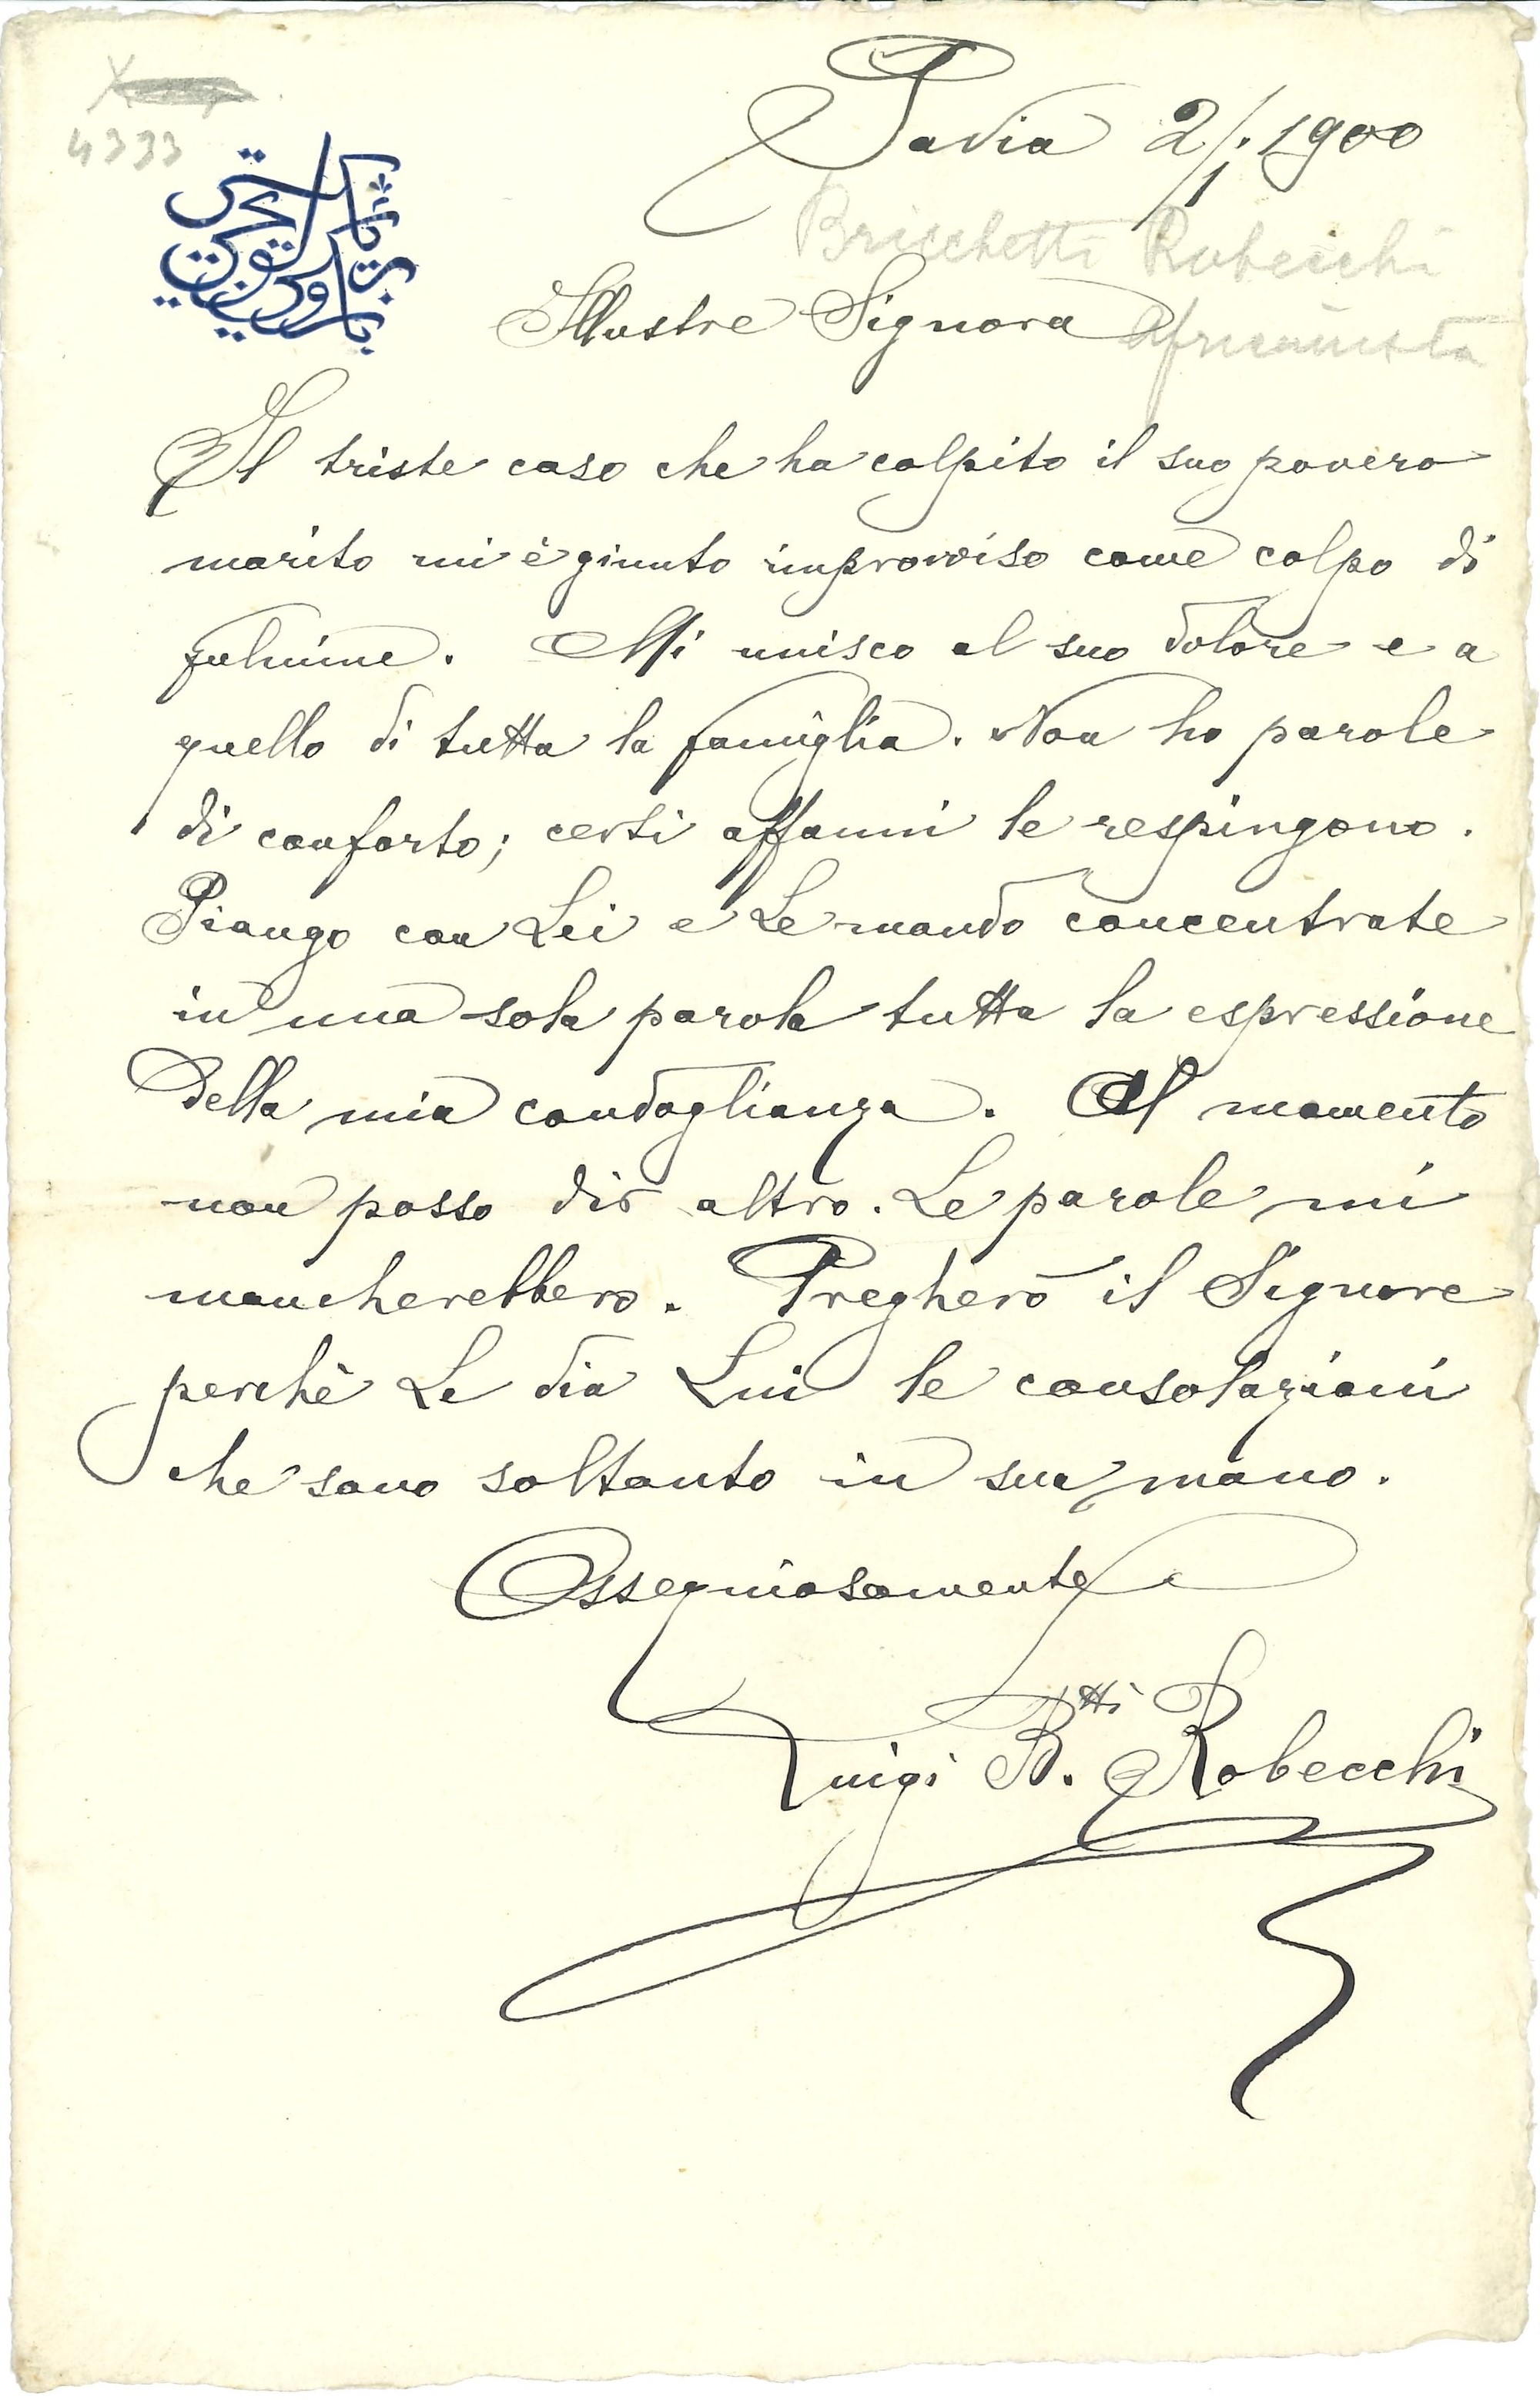 4333
Pavia 2/1.1900
Bricchetti Robecchi
Illustre Signora
Africanista
Il triste caso che ha colpito il suo povero
marito mi è giunto improvviso come colpo di
fulmine. Mi unisco al suo dolore e a
quello di tutta la famiglia. Non ho parole
di conforto; certi affanni le respingono.
Piango con Lei e Le mando concentrate
in una sola parola tutta la espressione
della mia condoglianza. Al momento
non posso dir altro. Le parole mi
mancherebbero. Pregherò il Signore
perchè Le dia Lui le consolazioni
che sono soltanto in sua mano.
Ossequiosamente
Luigi B.tti Robecchi